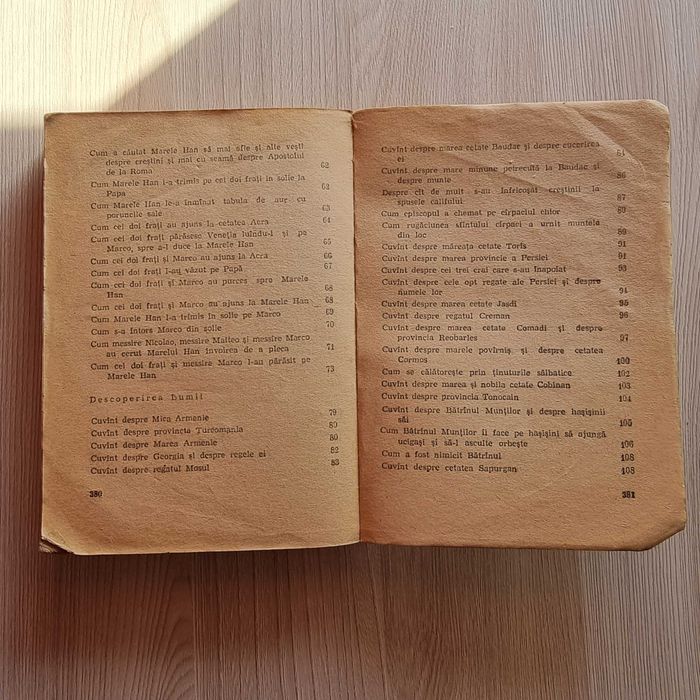 Cum a căutat Marele Han să mai afle și alte vești
despre creștini și mai cu seamă despre Apostolul
de la Roma 62
Cum Marele Han i-a trimis pe cei doi frați în solie la
Papa 62
Cum Marele Han le-a înmînat tabula de aur cu
poruncile sale 63
Cum cei doi frați au ajuns la cetatea Acra 64
Cum cei doi frați părăsesc Veneția luîndu-l și pe
Marco, spre a-l duce la Marele Han 65
Cum cei doi frați și Marco au ajuns la Acra 66
Cum cei doi frați l-au văzut pe Papă 67
Cum cei doi frați și Marco au purces spre Marele
Han 68
Cum cei doi frați și Marco au ajuns la Marele Han 68
Cum Marele Han l-a trimis în solie pe Marco 69
Cum s-a întors Marco din solie 70
Cum messire Nicolao, messire Mafteo și messire Marco
au cerut Marelui Han învoirea de a pleca 71
Cum cei doi frați și messire Marco l-au părăsit pe
Marele Han 73
Descoperirea lumii
Cuvînt despre Mica Armenie 79
Cuvînt despre provincia Turcomania 80
Cuvînt despre Marea Armenie 80
Cuvînt despre Georgia și despre regele ei 82
Cuvînt despre regatul Mosul 83
380
Cuvînt despre marea cetate Baudac și despre cucerirea
ei 84
Cuvînt despre mare minune petrecută la Baudac și
despre munte 86
Despre cît de mult s-au înfricoșat creștinii la
spusele califului 87
Cum episcopul a chemat pe cîrpaciul chior 89
Cum rugăciunea sfîntului cîrpaci a urnit muntele
din loc 89
Cuvînt despre măreața cetate Toris 91
Cuvînt despre marea provincie a Persiei 91
Cuvînt despre cei trei crai care s-au înapoiat 93
Cuvînt despre cele opt regate ale Persiei și despre
numele lor 94
Cuvînt despre marea cetate Jasdi 95
Cuvînt despre regatul Creman 96
Cuvînt despre marea cetate Comadi și despre
provincia Reobarles 97
Cuvînt despre marele povîrniș și despre cetatea
Cormos 100
Cum se călătorește prin ținuturile sălbatice 102
Cuvînt despre marea și nobila cetate Cobinan 103
Cuvînt despre provincia Tonocain 104
Cuvînt despre Bătrînul Munților și despre hașișinii
săi 105
Cum Bătrînul Munților îi face pe hașișini să ajungă
ucigași și să-l asculte orbește 106
Cum a fost nimicit Bătrînul 108
Cuvînt despre cetatea Sapurgan 108
381